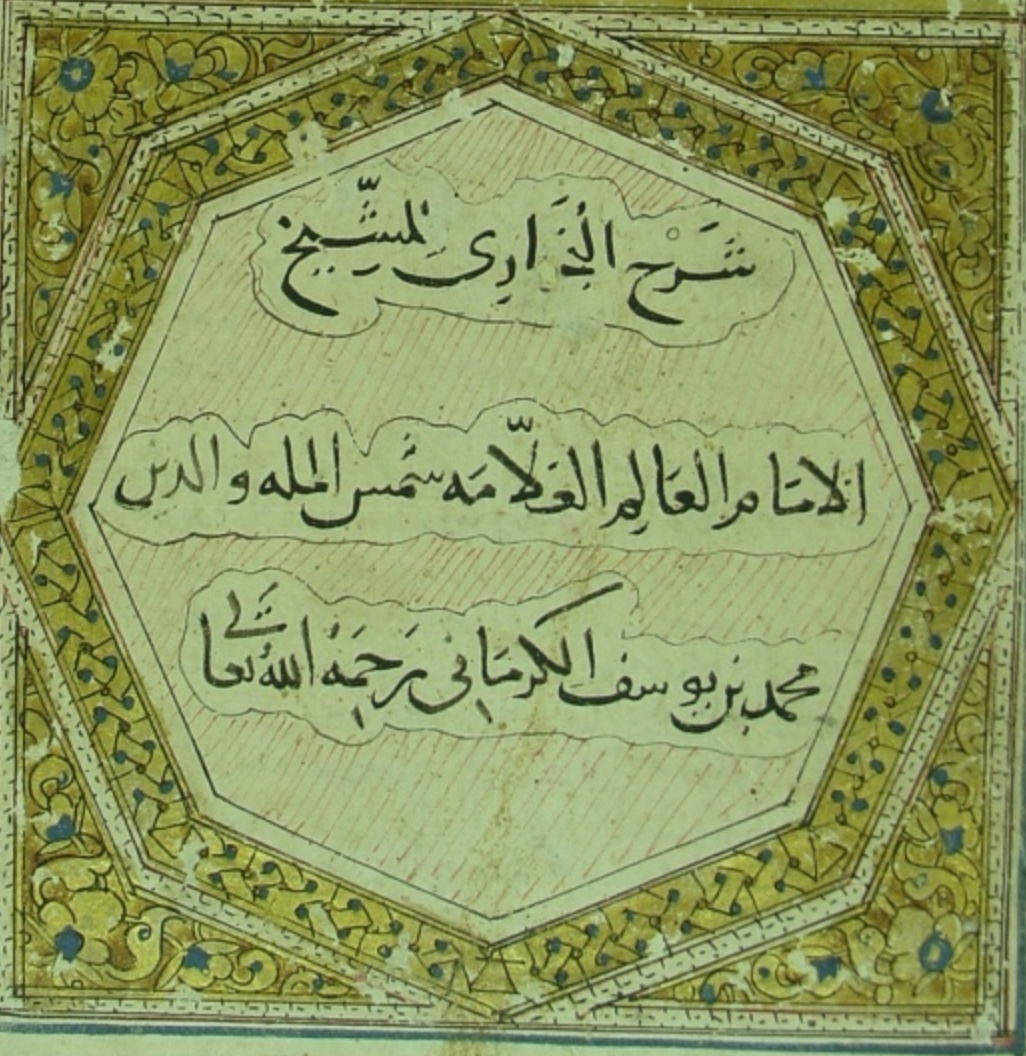 شَرح البُخَاري للشّيخ
الامَام العَالِم العَلّامَه شمس المله والدين
محمد بن يوسف الكرمَاني رَحِمَهُ اللهُ تَعالى